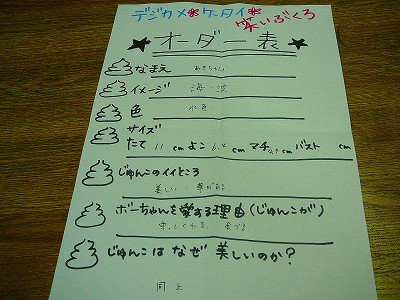 デジカメ*ケータイ*
笑いぶくろ
★オーダー表★
なまえ
イメージ 海・波
色 水色
サイズ
たて 11 cm よこ cm マチ cm バスト cm
じゅんこのイイところ
美しい
ボーちゃんを愛する理由(じゅんこが)
守ってくれる
じゅんこはなぜ美しいのか?
同上